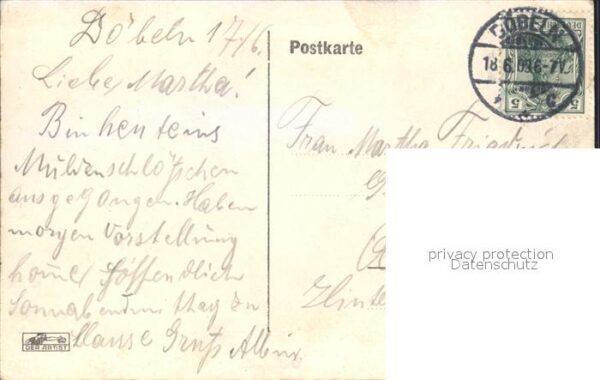 Döbeln 17/6.
Liebe Martha!
Bin heute ins
Muldenschlößchen
ausgegangen. Haben
morgen Vorstellung
hoffendlich
Sonnabend Mittag zu
Hause Gruß Albin
DER ARTIST
Postkarte
DÖBELN
18.6. 6-7V.
5 5
Frau Martha
Hinter
privacy protection
Datenschutz